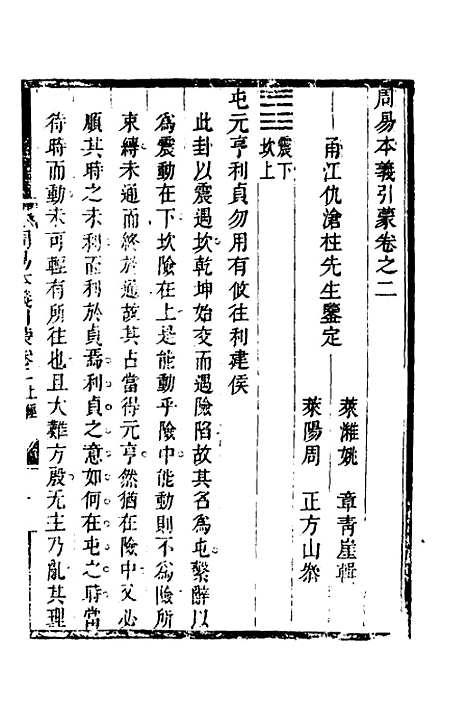 周易本義引蒙卷之二
甬江仇滄柱先生鑒定
萊濰姚　章青崖輯
萊陽周　正方山叅
震下
坎上
屯元亨利貞勿用有攸往利建侯
此卦以震遇坎乾坤始交而遇險陷故其名爲屯繫辭以
爲震動在下坎險在上是能動乎險中能動則不爲險所
束縛未通而終於通故其占當得元亨然猶在險中又必
順其時之未利而利於貞焉利貞之意如何在屯之時當
待時而動未可輕有所往也且大難方殷无主乃亂其理
周易本義引蒙卷二上經
一